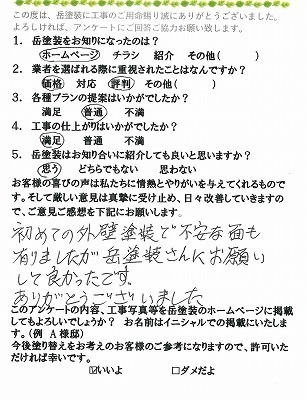 この度は、岳塗装に工事のご用命賜り誠にありがとうございました。
よろしければ、アンケートにご回答ご協力お願い致します。
1. 岳塗装をお知りになったのは？
ホームページ チラシ 紹介 その他（ ）
2. 業者を選ばれる際に重視されたことはなんですか？
価格 対応 評判 その他（ ）
3. 各種プランの提案はいかがでしたか？
満足 普通 不満
4. 工事の仕上がりはいかがでしたか？
満足 普通 不満
5. 岳塗装はお知り合いに紹介しても良いと思いますか？
思う どちらでもない 思わない
お客様の喜びの声は私たちに情熱とやりがいを与えてくれるもので
す。そして厳しい意見は真摯に受け止め、日々改善していきますの
で、ご意見ご感想を下記にお願いします。
初めての外壁塗装で不安な面も
有りましたが岳塗装さんにお願い
して良かったです。
ありがとうございました
このアンケートの内容、工事写真等を岳塗装のホームページに掲載
してもよろしいでしょうか？ お名前はイニシャルでの掲載にいたしま
す。（例 A 様邸）
今後塗り替えをお考えのお客様のご参考になりますので、許可いた
だければ幸いです。
☑いいよ □ダメだよ